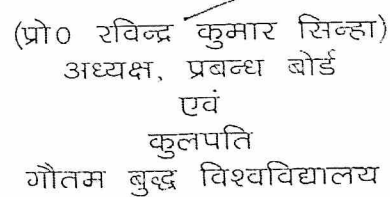 (प्रो० रविन्द्र कुमार सिन्हा)
अध्यक्ष, प्रबन्ध बोर्ड
एवं
कुलपति
गौतम बुद्ध विश्वविद्यालय